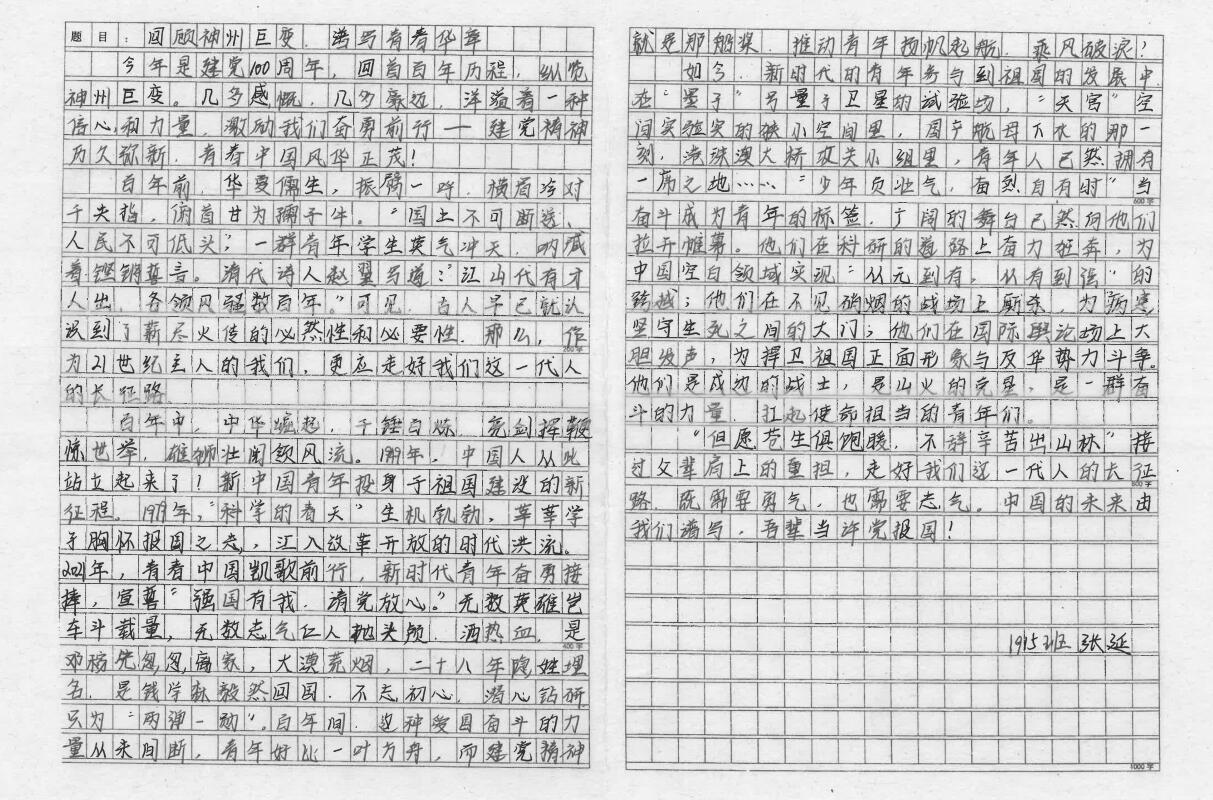 题目：回顾神州巨变，谱写青春华章
今年是建党100周年，回首百年历程，纵览
神州巨变。几多感慨，几多豪迈，洋溢着一种
信心和力量，激励我们奋勇前行——建党精神
历久弥新，青春中国风华正茂！
百年前，华夏儒生，振臂一呼，横眉冷对
千夫指，俯首甘为孺子牛。“国土不可断送、
人民不可低头”，一群青年学生英气冲天，呐喊
着铿锵誓言。清代诗人赵翼写道：“江山代有才
人出，各领风骚数百年。”可见，古人早已就认
识到了薪尽火传的必然性和必要性，那么，作
为21世纪主人的我们，更应走好我们这一代人
的长征路。
百年中，中华崛起，千锤百炼，亮剑挥鞭
惊世举，雄狮壮阔领风流。1949年，中国人从此
站立起来了！新中国青年投身于祖国建设的新
征程。1979年，“科学的春天”生机勃勃，莘莘学
子胸怀报国之志，汇入改革开放的时代洪流。
2021年，青春中国凯歌前行，新时代青年奋勇接
捧，宣誓“强国有我，请党放心。”无数英雄岂
车斗载量，无数志气仁人抛头颅，洒热血，是
邓稼先匆匆离家，大漠荒烟，二十八年隐姓埋
名，是钱学森毅然回国，不忘初心，潜心钻研
只为“两弹一勋”。百年间，这种爱国奋斗的力
量从未间断，青年好比一叶方舟，而建党精神
就是那船桨，推动青年扬帆起航，乘风破浪！
如今，新时代的青年参与到祖国的发展中，
在“墨子”号量子卫星的试验场，“天宫”空
间实验室的狭小空间里，国产航母下水的那一
刻，港珠澳大桥攻关小组里，青年人已然拥有
一席之地……“少年负壮气，奋烈自有时”当
600字
奋斗成为青年的标签，广阔的舞台已然向他们
拉开帷幕。他们在科研的道路上奋力狂奔，为
中国空白领域实现“从无到有，从有到强”的
跨越；他们在不见硝烟的战场上厮杀，为病患
坚守生死之间的大门；他们在国际舆论场上大
胆发声，为捍卫祖国正面形象与反华势力斗争。
他们是戍边的战士，是山火的克星，是一群奋
斗的力量，扛起使命担当的青年们。
“但愿苍生俱饱暖，不辞辛苦出山林”接
过父辈肩上的重担，走好我们这一代人的长征
800字
路，既需要勇气，也需要志气。中国的未来由
我们谱写，吾辈当许党报国！
1915班 张延
1000字